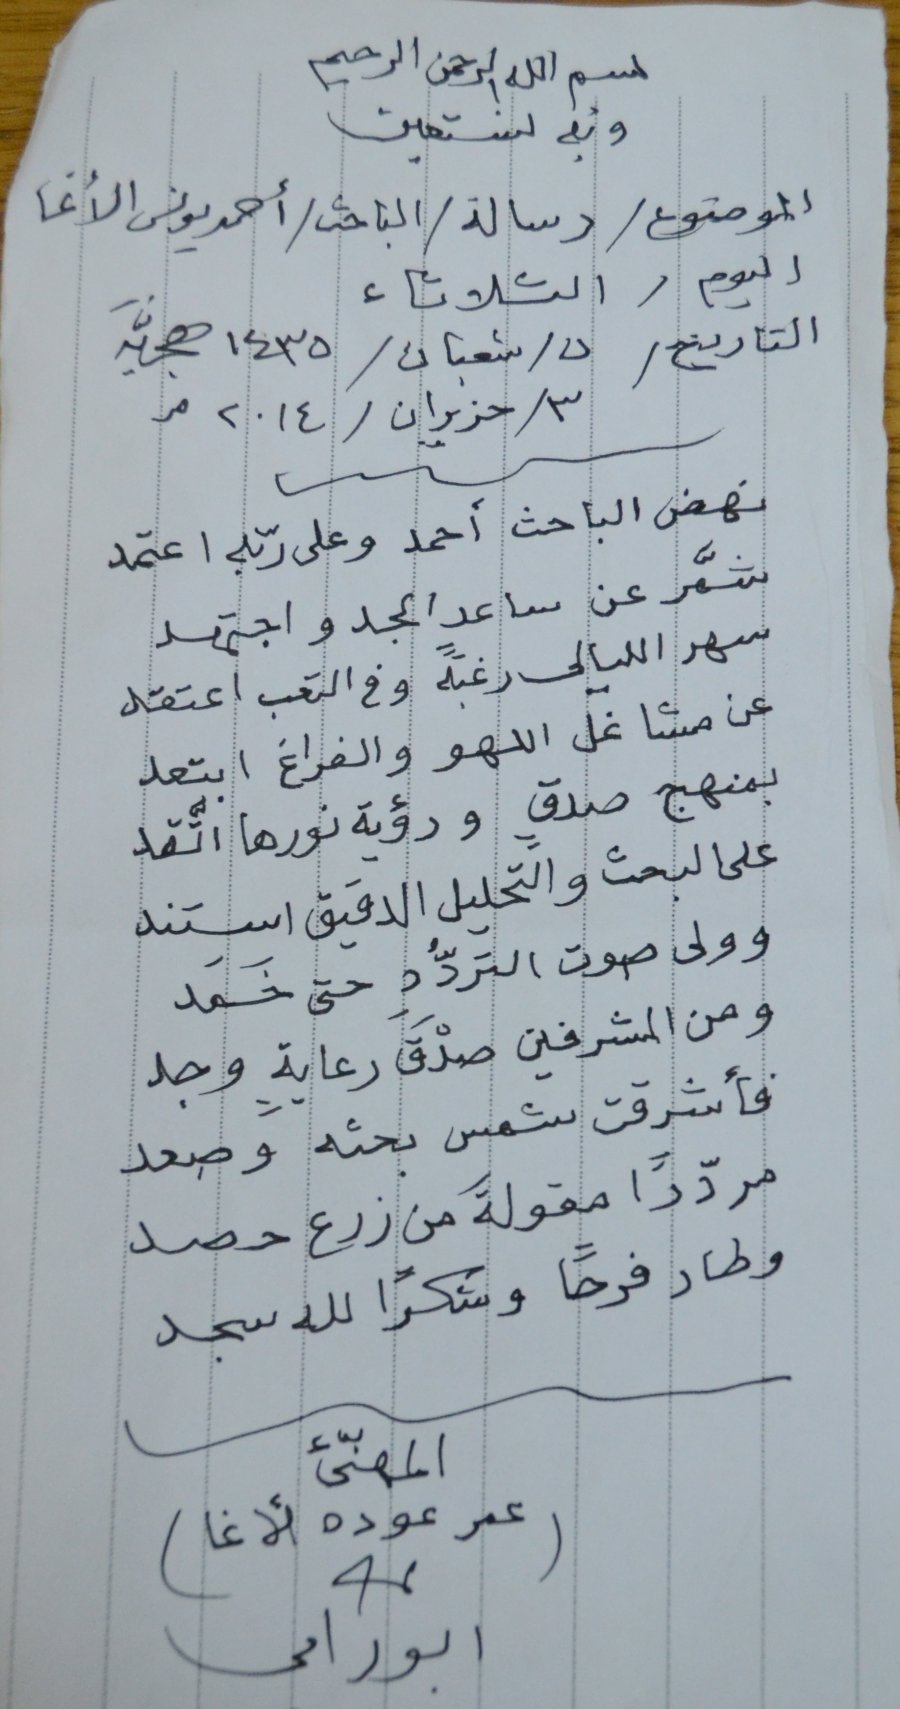 بسم الله الرحمن الرحيم
وبه نستعين
الموضوع/ رسالة/ الباحث/ أحمد يونس الأغا
اليوم / الثلاثاء
التاريخ/ ٥/ شعبان/ ١٤٣٥ هجريَّة
٣/ حزيران/ ٢٠١٤ م
نهض الباحث أحمد وعلى ربّه اعتمد
شمَّر عن ساعد الجد واجتهد
سهر الليالي رغبةً وفي التعب اعتقد
عن مشاغل اللهو والفراغ ابتعد
بمنهج صدقٍ ورؤية نورها اتَّقد
على البحث والتحليل الدقيق استند
وولى صوت التردُّدِ حتى خَمَد
ومن المشرفين صدْقَ رعايةٍ وجد
فأشرقت شمس بحثه وصعد
مردّدًا مقولةَ من زرع حصد
وطار فرحًا وشكرًا لله سجد
المهنّئ
(عمر عوده الأغا)
ابو رامي